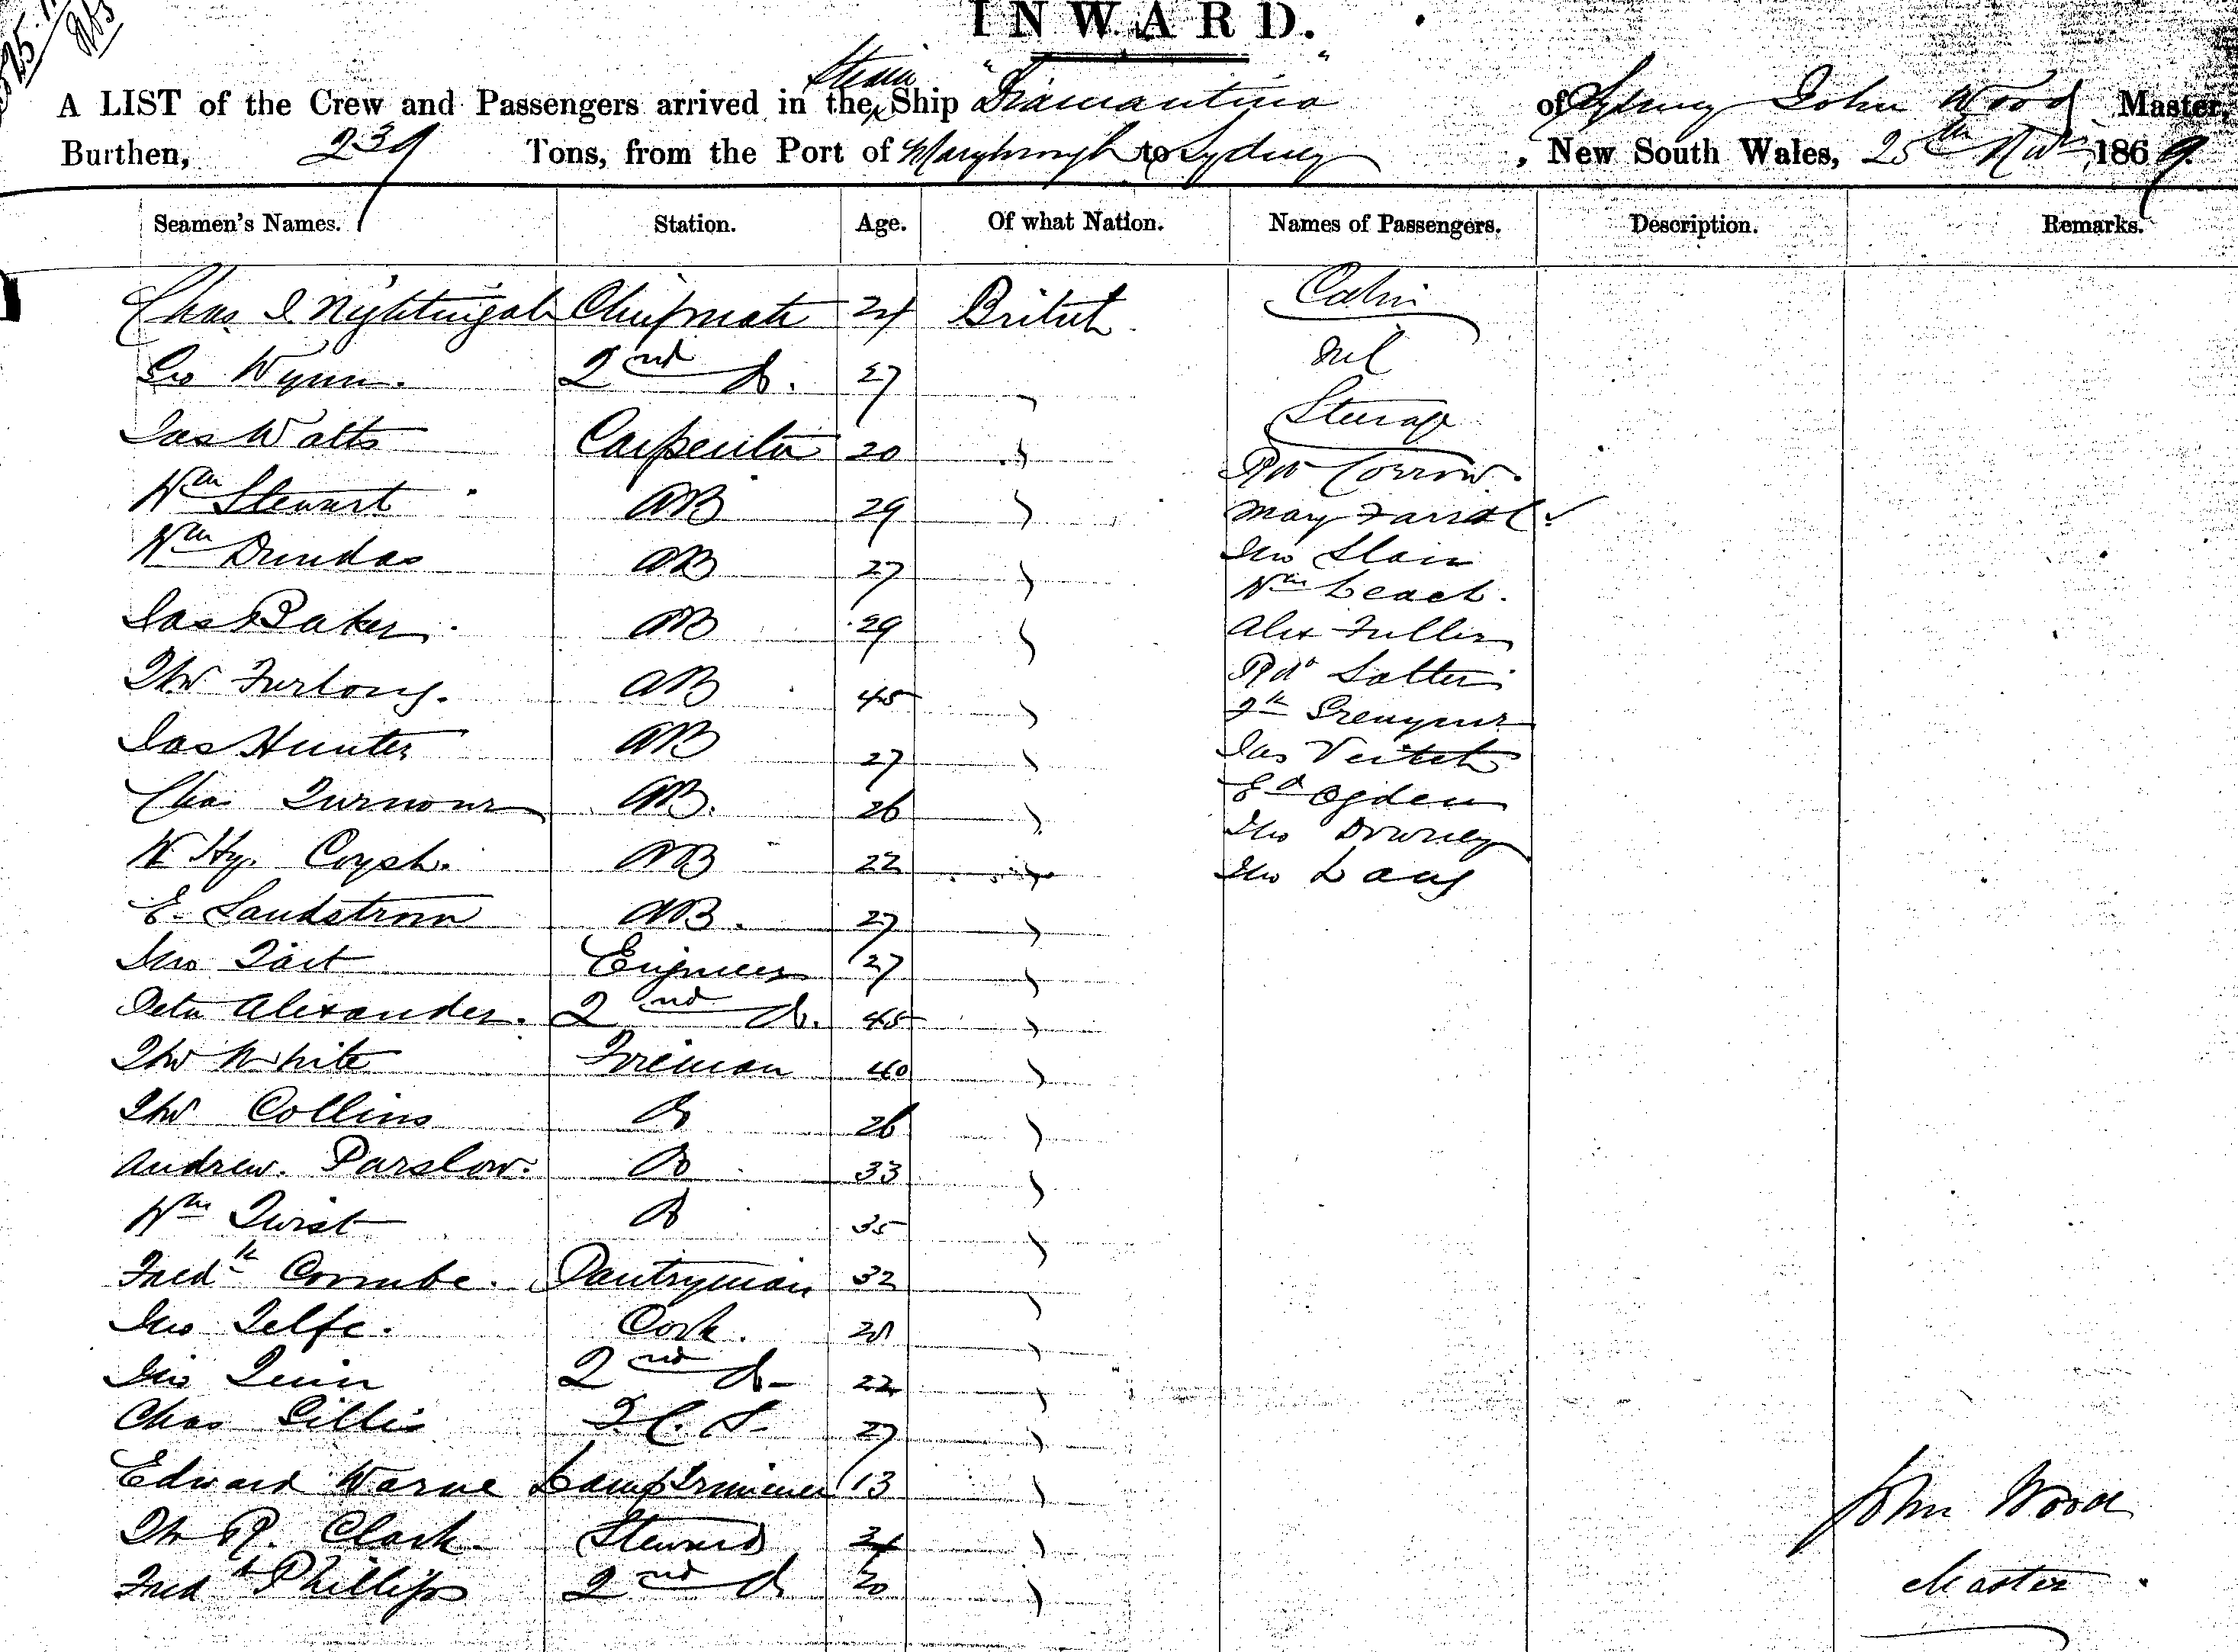 INWARD.
A LIST of the Crew and Passengers arrived in the Steam Ship "Diamantina" of Sydney John Wood Master,
Burthen, 239 Tons, from the Port of Maryborough to Sydney, New South Wales, 25th Novr 1869.
Seamen's Names. Station. Age. Of what Nation. Names of Passengers. Description. Remarks.
Chas I. Nightingale Chief mate 24 British Cabin
Geo Wynn. 2nd Do. 27 " Nil
Jas Watts Carpenter 20 " Steerage
Wm Stewart AB 29 " Corrow.
Wm Dundas AB 27 " Mary Farral
Jas Baker AB 29 " Jno Slain
Thos Furlong. AB 45 " Wm Leach.
Jas Hunter AB 27 " Alex Fuller
Chas Turnour AB. 26 " Salter
W Hy. Coysh. AB 22 "
E. Sandstrom AB. 27 " Jas Veitch
Jno Tait Engineer 27 " Ed Ogden
Peter Alexander. 2nd Do. 45 " Jno Downey
Thos White Fireman 40 " Jno Lang
Thos Collins Do 26 "
Andrew. Parslow. Do 33 "
Wm Twist Do 35 "
Fredk Coombe. Pantryman 32 "
Jno Telfe. Cook. 28 "
Jno Quin 2nd Do 22 "
Chas Gillis 27 "
Edward Warne Lamp Trimmer 13 "
R. Clark. Steward 24 "
Fredk Phillips 2nd Do 20 "
John Wood
Master.